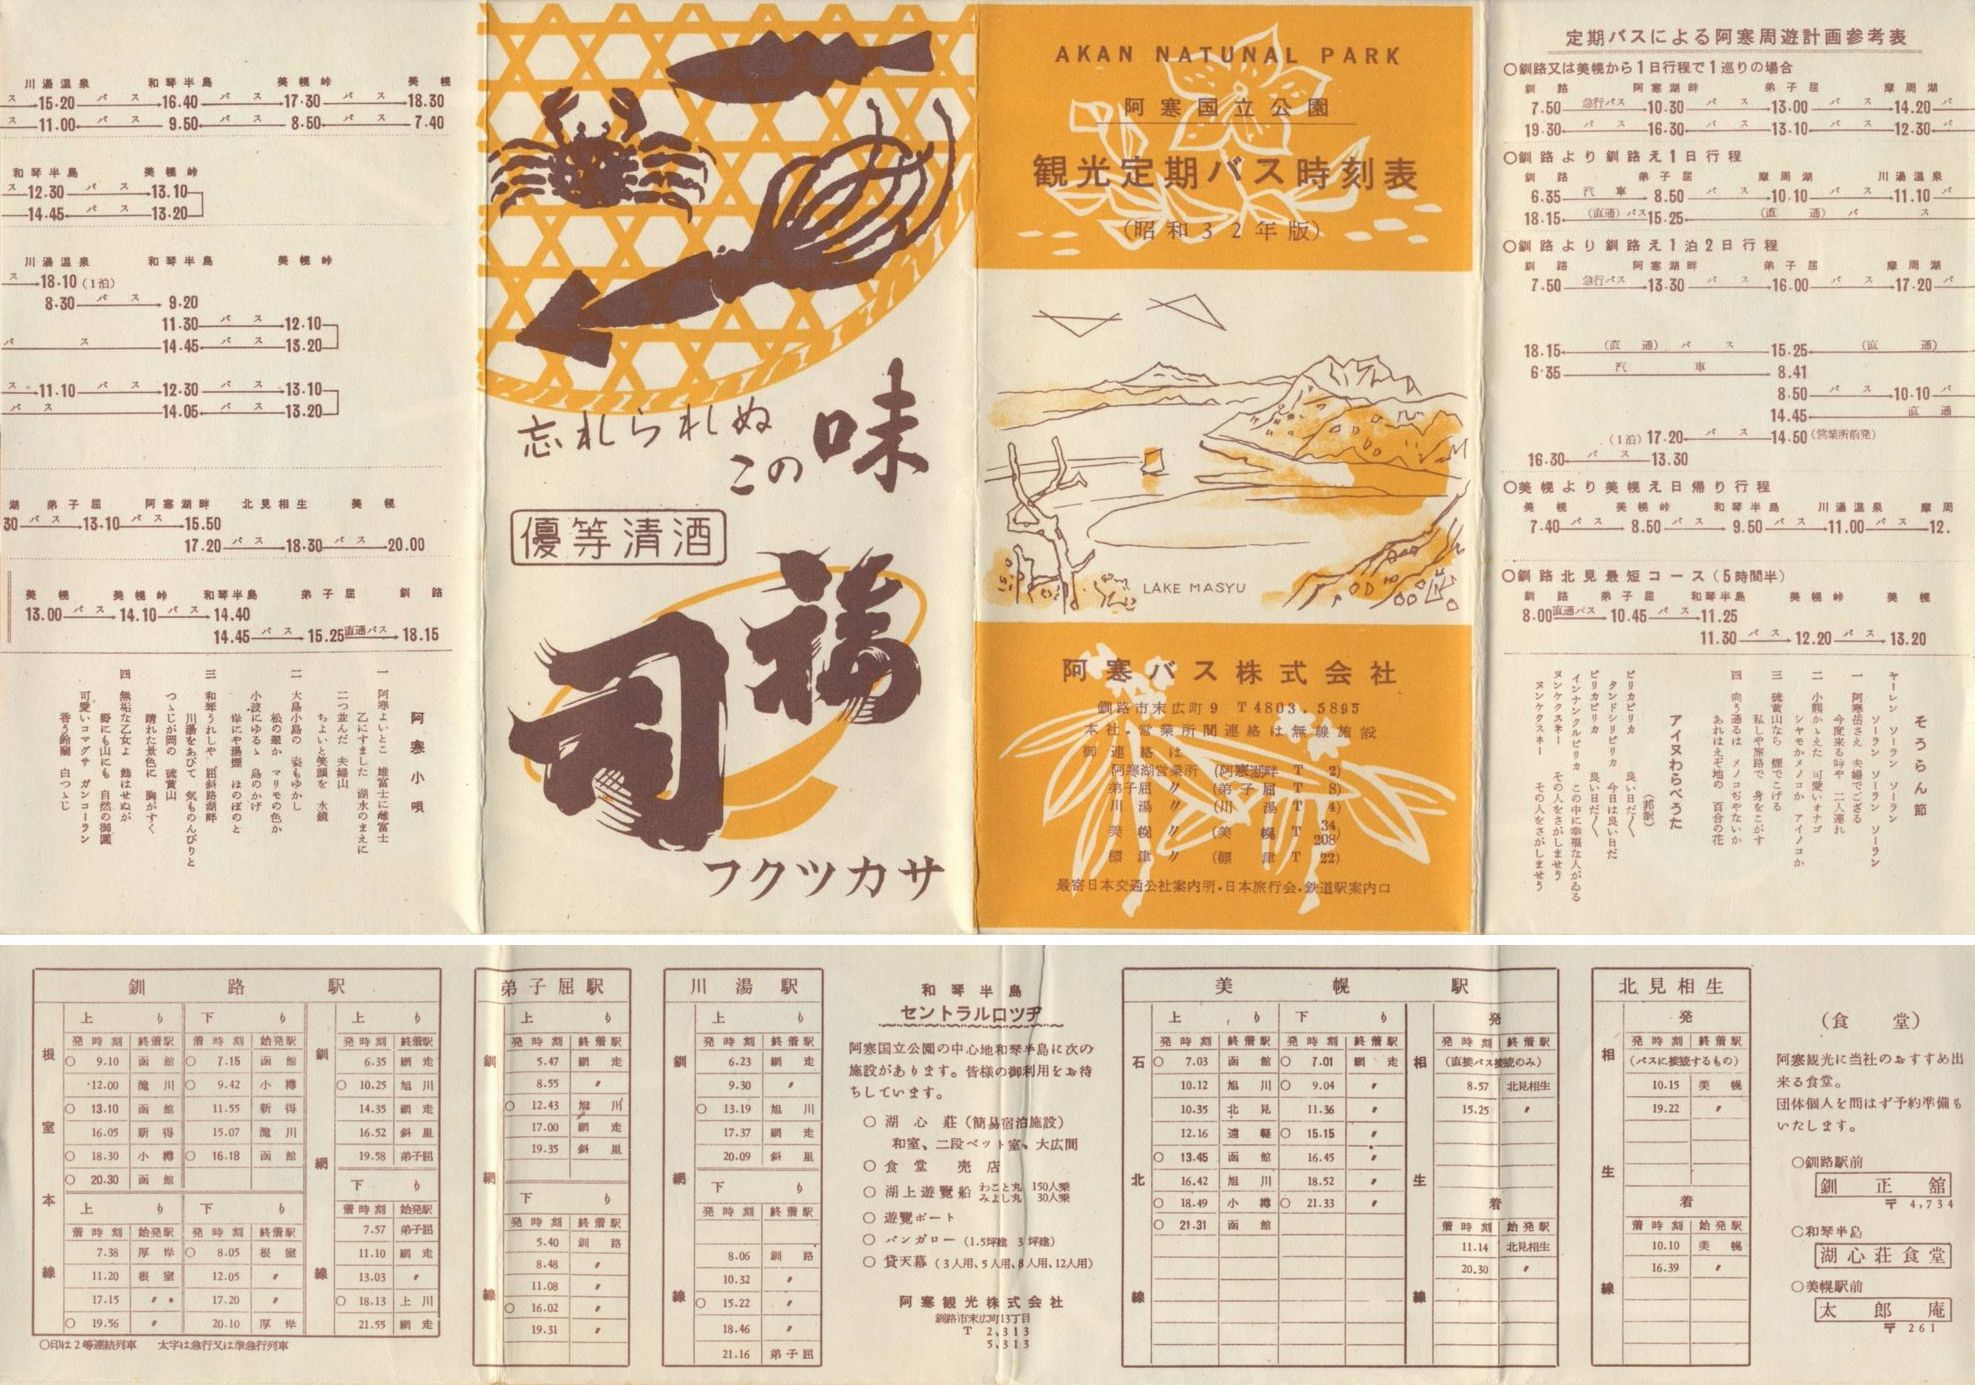 川湯温泉 和琴半島 美幌峠 美幌
ス 15.20 バス 16.40 バス 17.30 バス 18.30
ス 11.00 バス 9.50 バス 8.50 バス 7.40
和琴半島 美幌峠
ス 12.30 バス 13.10
14.45 バス 13.20
川湯温泉 和琴半島 美幌峠
ス 18.10 (1泊)
8.30 バス 9.20
11.30 バス 12.10
バス 14.45 バス 13.20
ス 11.10 バス 12.30 バス 13.10
バス 14.05 バス 13.20
湖 弟子屈 阿寒湖畔 北見相生 美幌
30 バス 13.10 バス 15.50
17.20 バス 18.30 バス 20.00
美幌 美幌峠 和琴半島 弟子屈 釧路
13.00 バス 14.10 バス 14.40
14.45 バス 15.25 直通バス 18.15
阿寒小唄
一 阿寒よいとこ 雄富士に雌富士
乙にすました 湖水のまえに
二つ並んだ 夫婦山
ちょいと笑顔を 水鏡
二 大島小島の 姿もゆかし
松の翠か マリモの色か
小波にゆるゝ 島のかげ
岸にや湯煙 ほのぼのと
三 和琴うれしや 屈斜路湖畔
川湯をあびて 気ものんびりと
つゝじが岡の 硫黄山
晴れた景色に 胸がすく
四 無垢な乙女よ 飾はせぬが
野にも山にも 自然の御園
可愛いコマグサ ガンコーラン
香う鈴蘭 白つゝじ
忘れられぬ
この味
優等清酒
福司
フクツカサ
AKAN NATUNAL PARK
阿寒国立公園
観光定期バス時刻表
(昭和32年版)
LAKE MASYU
阿寒バス株式会社
釧路市末広町9 T4803.5895
本社・営業所間連絡は無線施設
御連絡は
阿寒湖営業所 (阿寒湖畔 T 2)
弟子屈 〃 (弟子屈 T 8)
川湯 〃 (川湯 T 4)
美幌 〃 (美幌 T 34 208)
標津 〃 (標津 T 22)
最寄日本交通公社案内所・日本旅行会・鉄道駅案内口
定期バスによる阿寒周遊計画参考表
○釧路又は美幌から1日行程で1巡りの場合
釧路 阿寒湖畔 弟子屈 摩周湖
7.50 急行バス 10.30 バス 13.00 バス 14.20 バ
19.30 バス 16.30 バス 13.10 バス 12.30 バ
○釧路より釧路え1日行程
釧路 弟子屈 摩周湖 川湯温泉
6.35 汽車 8.50 バス 10.10 バス 11.10 バ
18.15 (直通)バス 15.25 (直通) バス
○釧路より釧路え1泊2日行程
釧路 阿寒湖畔 弟子屈 摩周湖
7.50 急行バス 13.30 バス 16.00 バス 17.20 バ
18.15 (直通) バス 15.25 (直通)
6.35 汽車 8.41
8.50 バス 10.10 バ
14.45 直通
(1泊) 17.20 バス 14.50 (営業所前発)
16.30 バス 13.30
○美幌より美幌え日帰り行程
美幌 美幌峠 和琴半島 川湯温泉 摩周
7.40 バス 8.50 バス 9.50 バス 11.00 バス 12.
○釧路北見最短コース(5時間半)
釧路 弟子屈 和琴半島 美幌峠 美幌
8.00 直通バス 10.45 バス 11.25
11.30 バス 12.20 バス 13.20
そうらん節
ヤーレン ソーラン ソーラン
ソーラン ソーラン ソーラン
一 阿寒岳さえ 夫婦でござる
今度来る時や 二人連れ
二 小熊かゝえた 可愛いオナゴ
シヤモかメノコか アイノコか
三 硫黄山なら 煙でこげる
私しや旅路で 身をこがす
四 向う通るは メノコぢやないか
あれはえぞ地の 百合の花
アイヌわらべうた
(邦訳)
ピリカピリカ 良い日だ〱
タンドシリピリカ 今日は良い日だ
ピリカピリカ 良い日だ〱
インナンクルピリカ この中に幸福な人がゐる
ヌンケクスネー その人をさがしませう
ヌンケクスネー その人をさがしませう
釧路駅
根室本線
上り 下り
発時刻 終着駅 着時刻 始発駅
○ 9.10 函館 ○ 7.15 函館
12.00 滝川 ○ 9.42 小樽
○ 13.10 函館 11.55 新得
16.05 新得 15.07 滝川
○ 18.30 小樽 ○ 16.18 函館
○ 20.30 函館
上り 下り
着時刻 始発駅 発時刻 終着駅
7.38 厚岸 ○ 8.05 根室
11.20 根室 12.05 〃
17.15 〃 17.20 〃
○ 19.56 〃 20.10 厚岸
釧網線
上り
発時刻 終着駅
6.35 網走
○ 10.25 旭川
14.35 網走
16.52 斜里
19.58 弟子屈
下り
着時刻 始発駅
7.57 弟子屈
11.10 網走
13.03 〃
○ 18.13 上川
21.55 網走
○印は2等連結列車 太字は急行又は準急行列車
弟子屈駅
釧網線
上り
発時刻 終着駅
5.47 網走
8.55 〃
○ 12.43 旭川
17.00 網走
19.35 斜里
下り
発時刻 終着駅
5.40 釧路
8.48 〃
11.08 〃
○ 16.02 〃
19.31 〃
川湯駅
釧網線
上り
発時刻 終着駅
6.23 網走
9.30 〃
○ 13.19 旭川
17.37 網走
20.09 斜里
下り
発時刻 終着駅
8.06 釧路
10.32 〃
○ 15.22 〃
18.46 〃
21.16 弟子屈
和琴半島
セントラルロツヂ
阿寒国立公園の中心地和琴半島に次の
施設があります。皆様の御利用をお待
ちしています。
○ 湖心荘(簡易宿泊施設)
和室、二段ベット室、大広間
○ 食堂 売店
○ 湖上遊覧船 わこと丸 150人乗
みよし丸 30人乗
○ 遊覧ボート
○ バンガロー (1.5坪建 3坪建)
○ 貸天幕 (3人用、5人用、8人用、12人用)
阿寒観光株式会社
釧路市末広町13丁目
T 2,313
5,313
美幌駅
石北線
上り 下り
発時刻 終着駅 発時刻 終着駅
○ 7.03 函館 ○ 7.01 網走
10.12 旭川 ○ 9.04 〃
10.35 北見 11.36 〃
12.16 遠軽 ○ 15.15 〃
○ 13.45 函館 16.45 〃
16.42 旭川 18.52 〃
○ 18.49 小樽 ○ 21.33 〃
○ 21.31 函館
相生線
発
発時刻 終着駅
(直接バス接続のみ)
8.57 北見相生
15.25 〃
着
着時刻 始発駅
11.14 北見相生
20.30 〃
北見相生
相生線
発
発時刻 終着駅
(バスに接続するもの)
10.15 美幌
19.22 〃
着
着時刻 始発駅
10.10 美幌
16.39 〃
(食堂)
阿寒観光に当社のおすすめ出
来る食堂。
団体個人を問はず予約準備も
いたします。
○釧路駅前
釧正舘
〒4,734
○和琴半島
湖心荘食堂
○美幌駅前
太郎庵
〒261